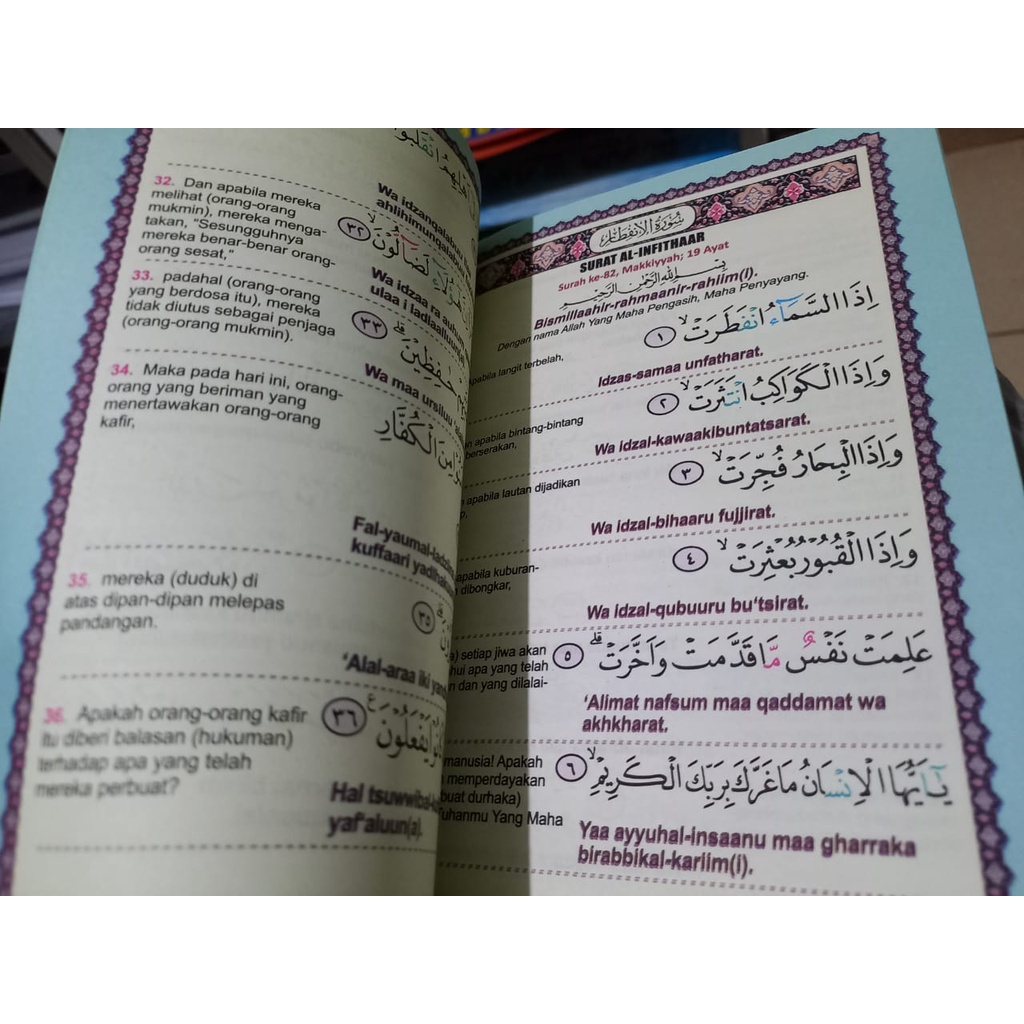 32. Dan apabila mereka
melihat (orang-orang
mukmin), mereka menga-
takan, "Sesungguhnya
mereka benar-benar orang-
orang sesat,"
لَضَاۤلُّوْنَۙ ٣٢
Wa idzanqalabuu
ahlihimunqalabuu
Wa idzaa ra auhum
ulaa i ladlaalluun(a)
33. padahal (orang-orang
yang berdosa itu), mereka
tidak diutus sebagai penjaga
(orang-orang mukmin).
حٰفِظِيْنَۗ ٣٣
Wa maa ursiluu
34. Maka pada hari ini, orang-
orang yang beriman yang
menertawakan orang-orang
kafir,
مِنَ الْكُفَّارِ
Fal-yaumal-ladzi
kuffaari yadhhak
35. mereka (duduk) di
atas dipan-dipan melepas
pandangan.
٣٥
'Alal-araa iki
36. Apakah orang-orang kafir
itu diberi balasan (hukuman)
terhadap apa yang telah
mereka perbuat?
يَفْعَلُوْنَ ٣٦
Hal tsuwwibal-
yaf'aluun(a).
سُوْرَةُ الْاِنْفِطَارِ
SURAT AL-INFITHAAR
Surah ke-82, Makkiyyah; 19 Ayat
بِسْمِ اللّٰهِ الرَّحْمٰنِ الرَّحِيْمِ
Bismillaahir-rahmaanir-rahiim(i).
Dengan nama Allah Yang Maha Pengasih, Maha Penyayang.
اِذَا السَّمَاۤءُ انْفَطَرَتْۙ ١
apabila langit terbelah,
Idzas-samaa unfatharat.
وَاِذَا الْكَوَاكِبُ انْتَثَرَتْۙ ٢
apabila bintang-bintang
berserakan,
Wa idzal-kawaakibuntatsarat.
وَاِذَا الْبِحَارُ فُجِّرَتْۙ ٣
apabila lautan dijadikan
Wa idzal-bihaaru fujjirat.
وَاِذَا الْقُبُوْرُ بُعْثِرَتْۙ ٤
apabila kuburan-
dibongkar,
Wa idzal-qubuuru bu'tsirat.
عَلِمَتْ نَفْسٌ مَّا قَدَّمَتْ وَاَخَّرَتْۗ ٥
setiap jiwa akan
apa yang telah
dan yang dilalai-
'Alimat nafsum maa qaddamat wa
akhkharat.
يٰٓاَيُّهَا الْاِنْسَانُ مَا غَرَّكَ بِرَبِّكَ الْكَرِيْمِۙ ٦
manusia! Apakah
memperdayakan
durhaka)
Tuhanmu Yang Maha
Yaa ayyuhal-insaanu maa gharraka
birabbikal-kariim(i).